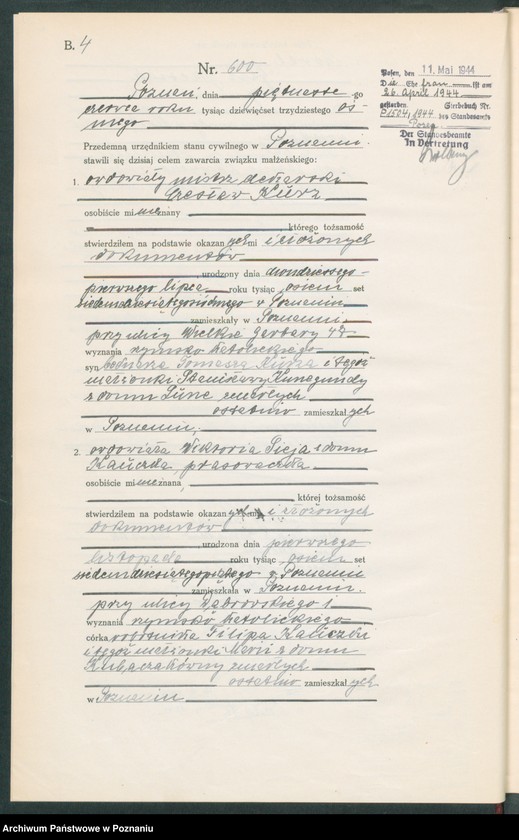 B. 4
Nr. 600
Posen, den 11. Mai 1944
Die Ehe frau ist am
26. April 1944
gestorben. Sterbebuch Nr.
1504/1944 des Standesamts
Posen
Der Standesbeamte
In Vertretung
Poznań, dnia piętnaste -go
czerwca roku tysiąc dziewięćset trzydziestego ós-
mego
Przedemną urzędnikiem stanu cywilnego w Poznaniu
stawili się dzisiaj celem zawarcia związku małżeńskiego:
1. owdowiały mistrz dekarski
Czesław Kurz
osobiście mi nieznany
którego tożsamość
stwierdziłem na podstawie okazanych mi i złożonych
dokumentów
urodzony dnia dwudziestego-
pierwszego lipca roku tysiąc osiem set
siedemdziesiątego ósmego w Poznaniu
zamieszkały w Poznaniu,
przy ulicy Wielkie Garbary 47
wyznania rzymsko katolickiego
syn Tomasza Kurza i tegoż
małżonki Stanisławy Kunegundy
z domu zmarłych
ostatnio zamieszkałych
w Poznaniu,
2. owdowiała Wiktoria z domu
prasowaczka
osobiście mi nieznana,
której tożsamość
stwierdziłem na podstawie okazanych mi i złożonych
dokumentów
urodzona dnia pierwszego
listopada roku tysiąc osiem set
siedemdziesiątego piątego w Poznaniu
zamieszkała w Poznaniu,
przy ulicy 1
wyznania rzymsko katolickiego
córka robotnika Filipa
i tegoż małżonki Marii z domu
zmarłych
ostatnio zamieszkałych
w Poznaniu
Archiwum Państwowe w Poznaniu